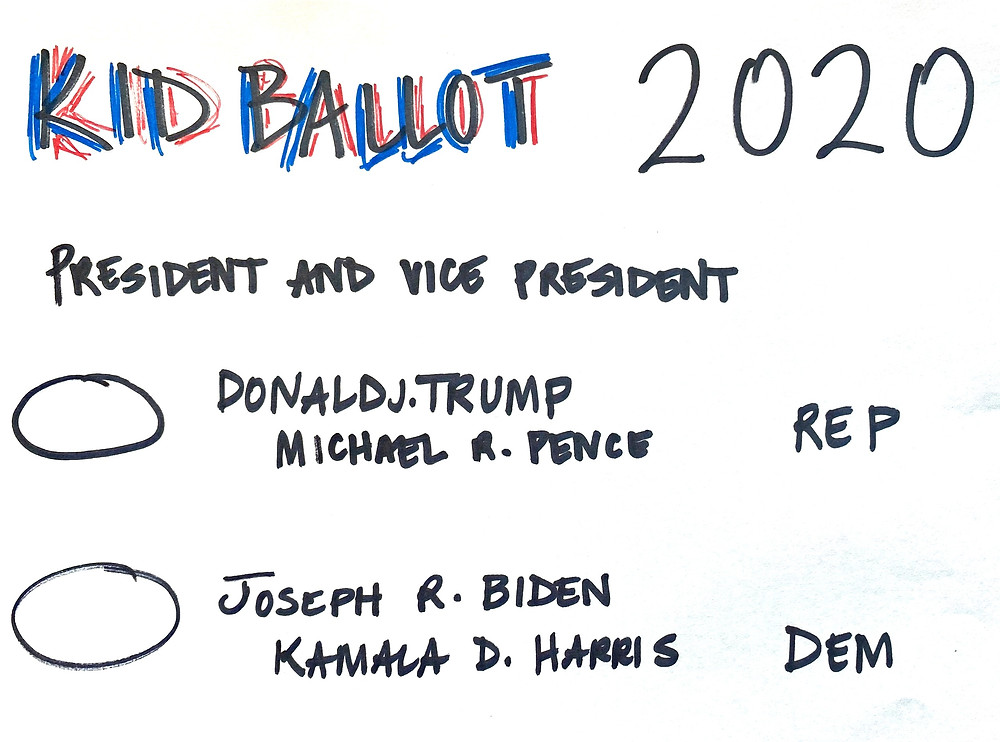 KID BALLOT 2020
PRESIDENT AND VICE PRESIDENT
DONALD J. TRUMP
MICHAEL R. PENCE REP
JOSEPH R. BIDEN
KAMALA D. HARRIS DEM